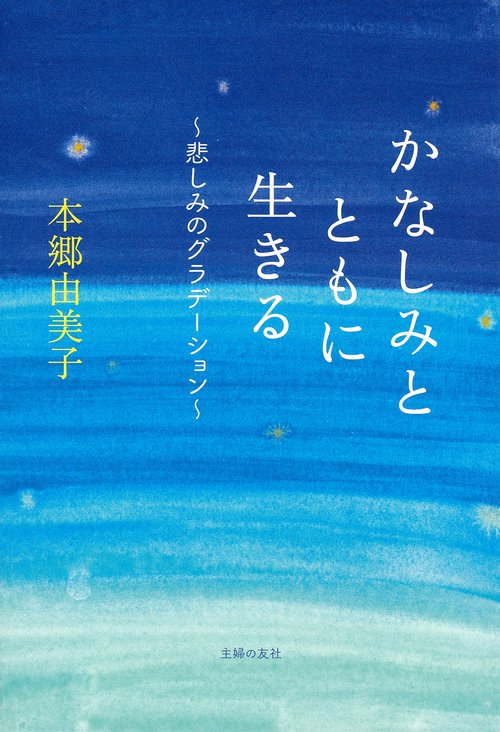 かなしみと
ともに
生きる
～悲しみのグラデーション～
本郷由美子
主婦の友社